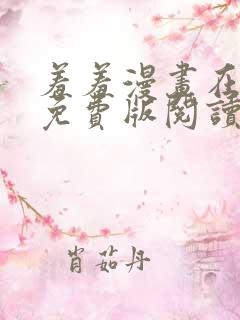 羞羞漫畫在
免費版閱讀
肖茹丹